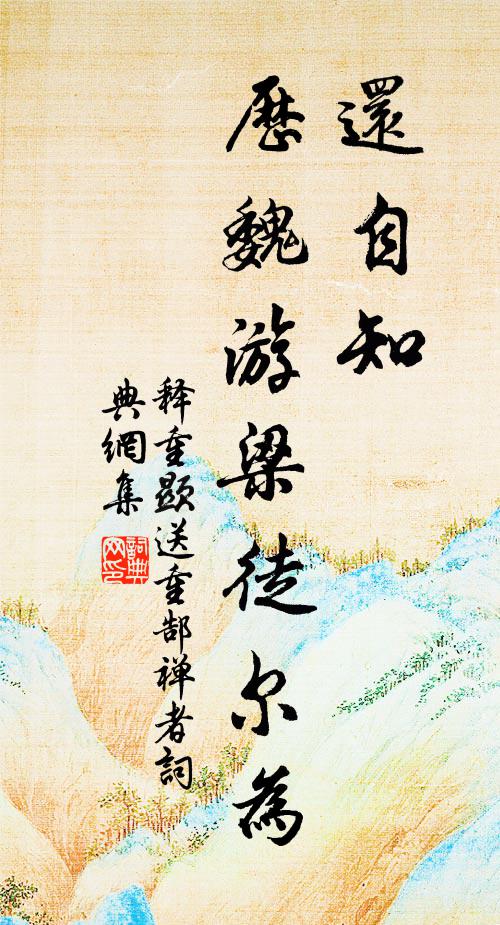 還自知
歷魏游梁徒尔為
释重顯送重郜禅者詞
典網集
詞典
网印